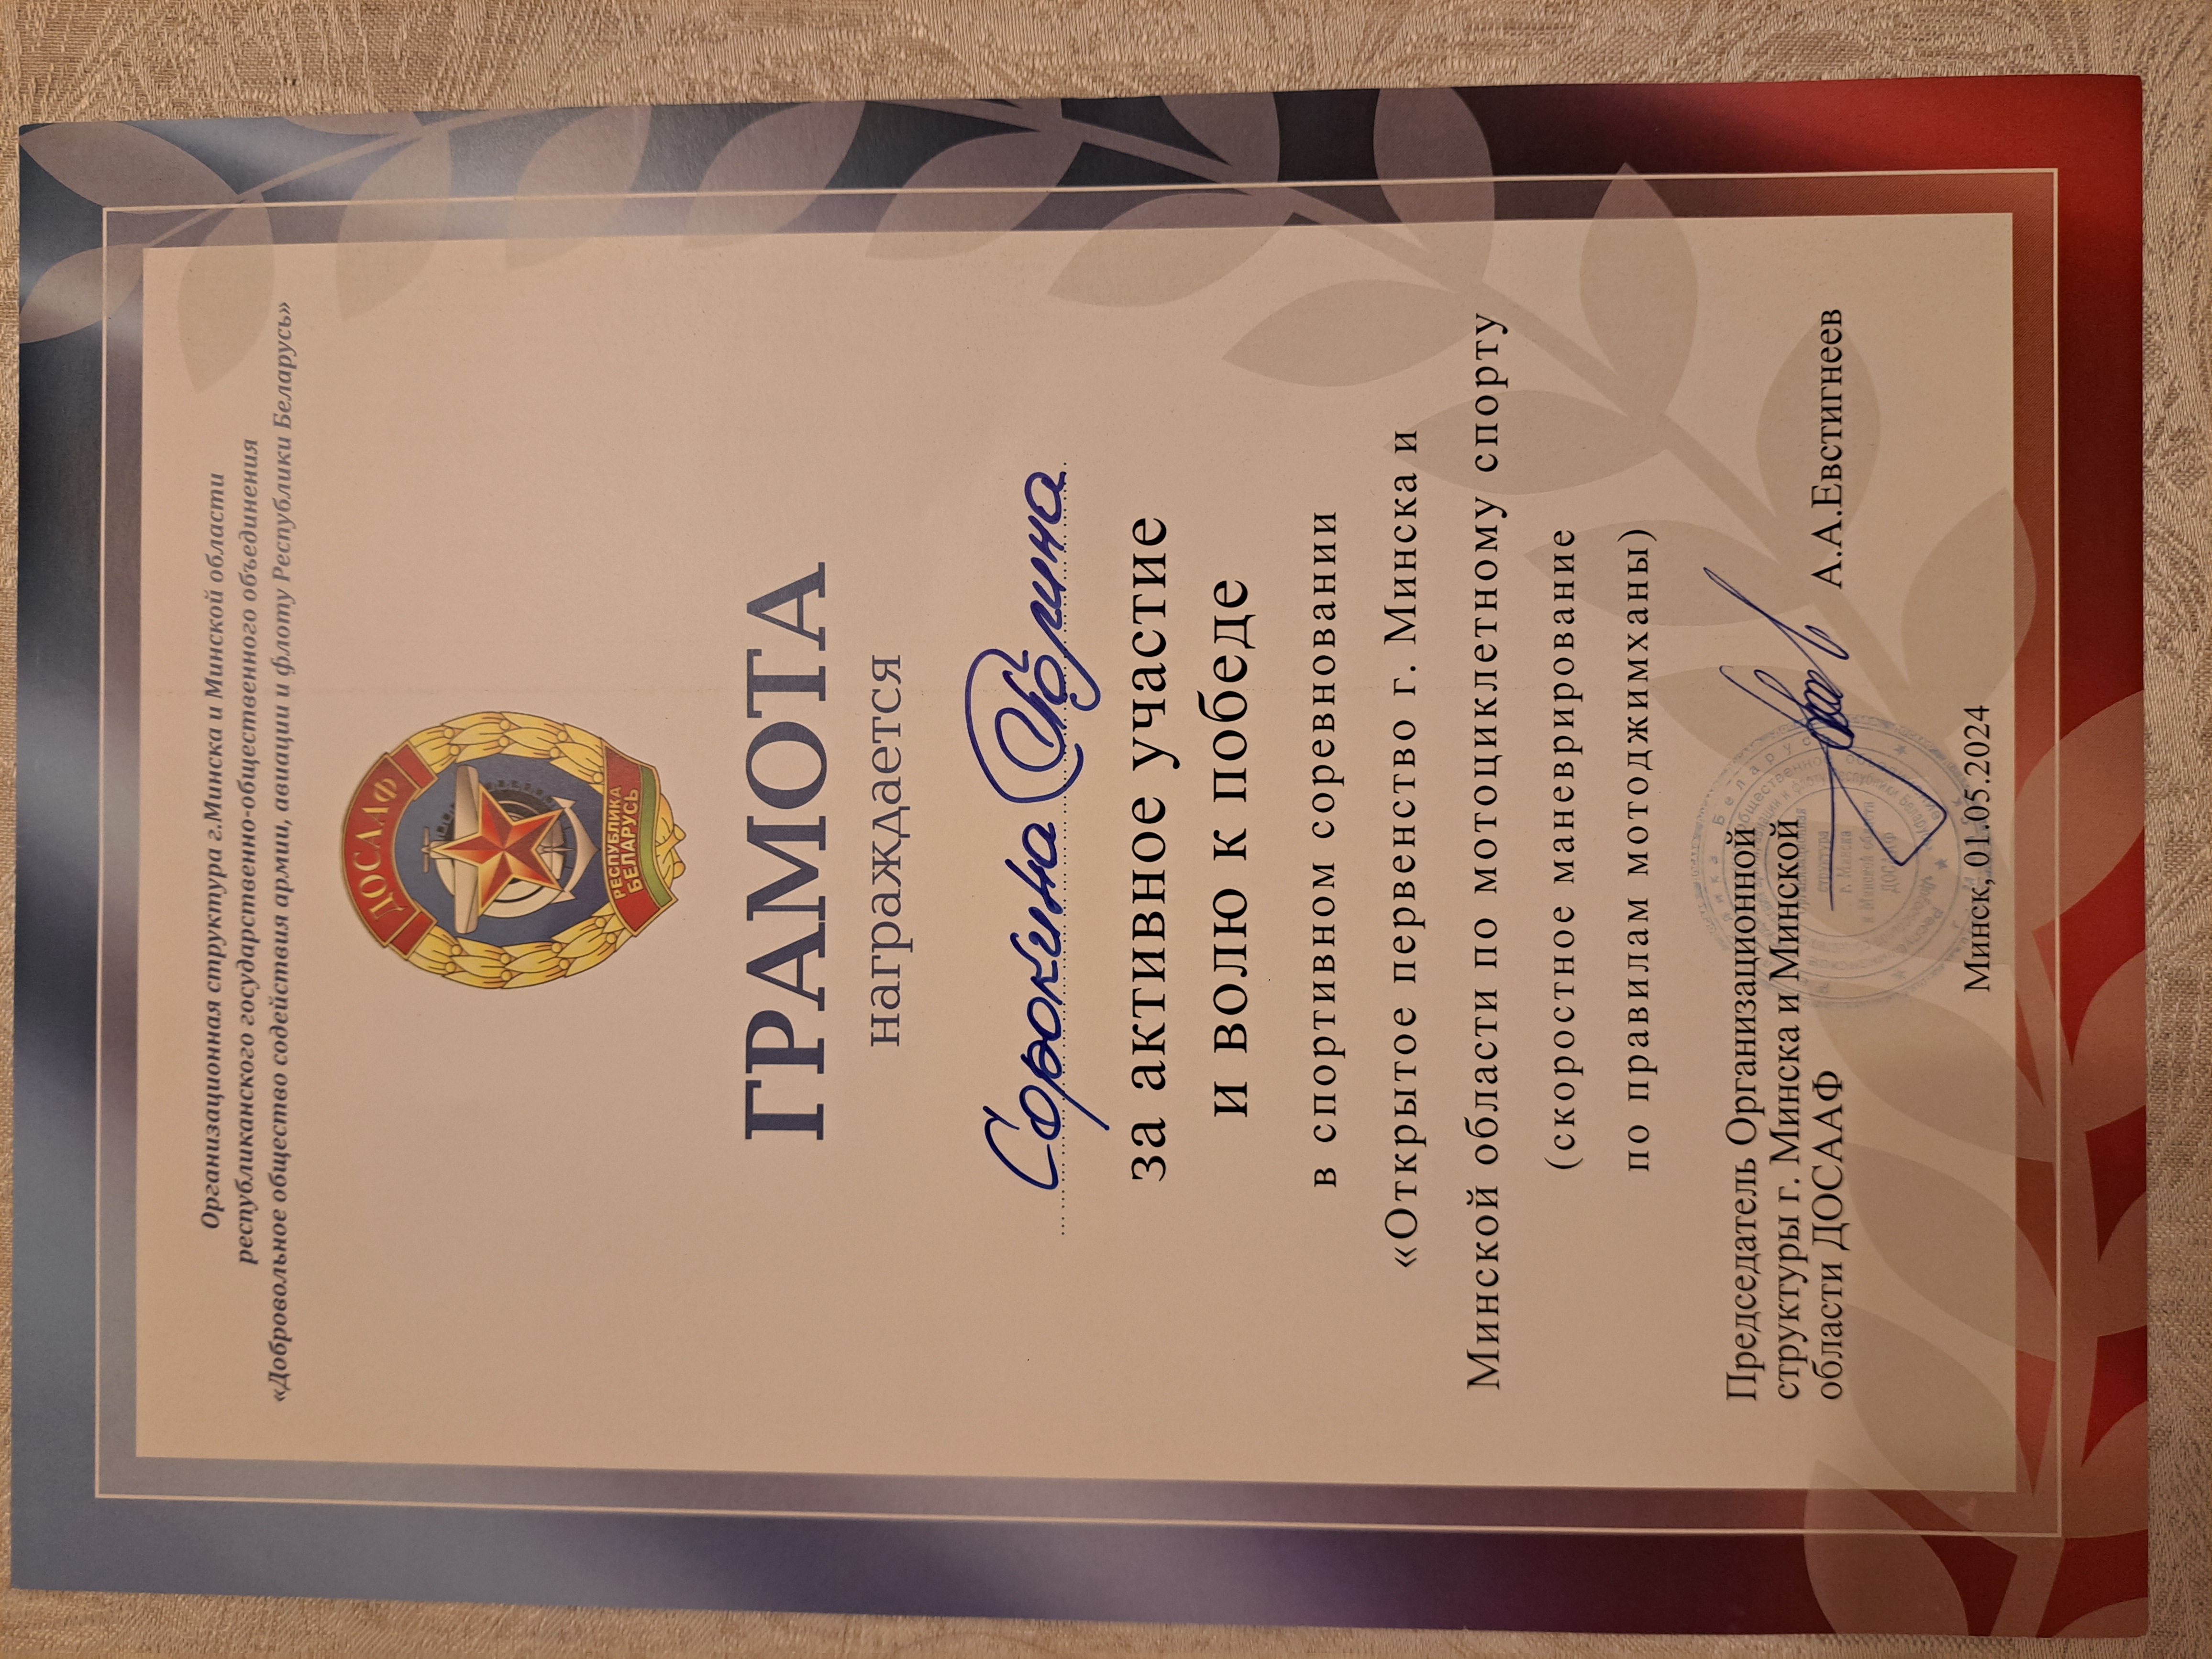 Организационная структура г.Минска и Минской области
республиканского государственно-общественного объединения
«Добровольное общество содействия армии, авиации и флоту Республики Беларусь»
ДОСААФ
РЕСПУБЛИКА
БЕЛАРУСЬ
ГРАМОТА
награждается
Сорокина Полина
за активное участие
и волю к победе
в спортивном соревновании
«Открытое первенство г. Минска и
Минской области по мотоциклетному спорту
(скоростное маневрирование
по правилам мотоджимханы)
Председатель Организационной
структуры г. Минска и Минской
области ДОСААФ
А.А.Евстигнеев
Организационная
структура
г. Минска
и Минской области
ДОСААФ
Минск, 01.05.2024